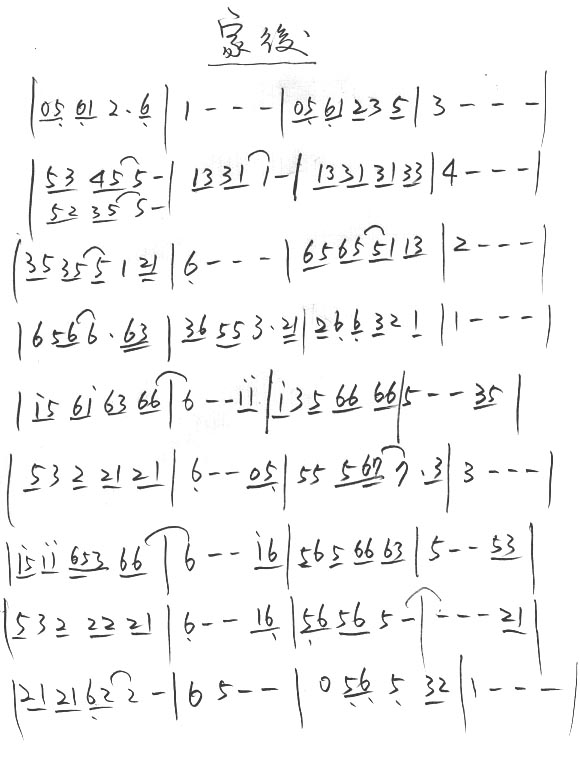 家後
|05 61 2·6|1 - - -|05 61 2 3 5|3 - - -|
|53 45 5 -|13 31 1 -|13 31 31 33|4 - - -|
52 35 5 -
|35 35 5 1 21|6 - - -|65 65 51 13|2 - - -|
|6 56 6·63|36 55 3·21|26 6 32 1|1 - - -|
|i5 6i 63 66|6 - - ii|i3 5 66 66|5 - - 35|
|53 2 21 21|6 - - 05|55 567 7·3|3 - - -|
|i5 ii 653 66|6 - - i6|56 5 66 63|5 - - 53|
|53 2 22 21|6 - - 16|56 56 5 -|- - - 21|
|21 21 62 2 -|6 5 - -|0 56 5 32|1 - - -|